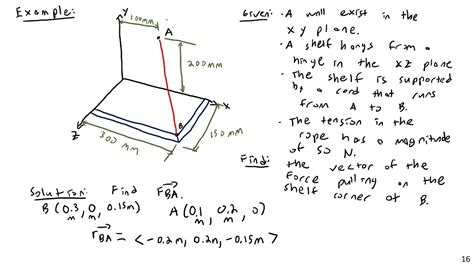 Example:
Y
100mm
A
200mm
X
B
Z
300 mm
150 mm
Given: · A wall exist in the
x y plane.
· A shelf hangs from a
hinge in the xz plane
· The shelf is supported
by a cord that runs
from A to B.
· The tension in the
rope has a magnitude
of 50 N.
Find: the vector of the
force pulling on the
shelf corner at B.
Solution: Find F⃗BA.
B(0.3m, 0m, 0.15m) A(0.1m, 0.2m, 0)
r⃗BA = <-0.2m, 0.2m, -0.15m>
16